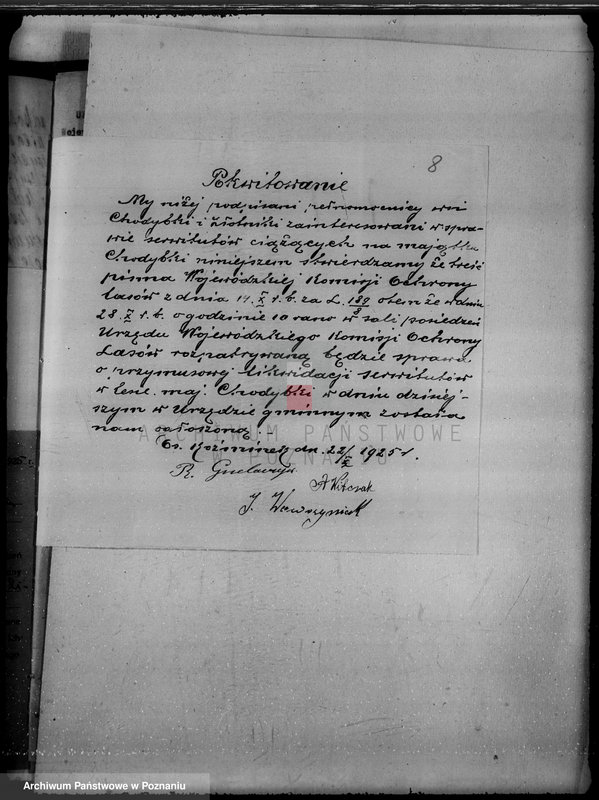 8
Pokwitowanie
My niżej podpisani pełnomocnicy wsi
Chodybki i Żłotniki zainteresowani w spra-
wie serwitutów ciążących na majątku
Chodybki niniejszem stwierdzamy że treść
pisma Wojewódzkiej Komisji Ochrony
Lasów z dnia 14 X r. b. za L. 189/8 o tem że w dniu
28 X r. b. o godzinie 10 rano w sali posiedzeń
Urzędu Wojewódzkiego Komisji Ochrony
Lasów rozpatrywaną będzie sprawa
o przymusowej likwidacji serwitutów
w lesie maj. Chodybki w dniu dzisiej-
szym w Urzędzie gminnym została
nam ogłoszoną.-
Koźminek dn. 22/X 1925 r.
R.
A Witczak
J. Wawrzyniak
ARCHIWUM PAŃSTWOWE
W POZNANIU
Archiwum Państwowe w Poznaniu